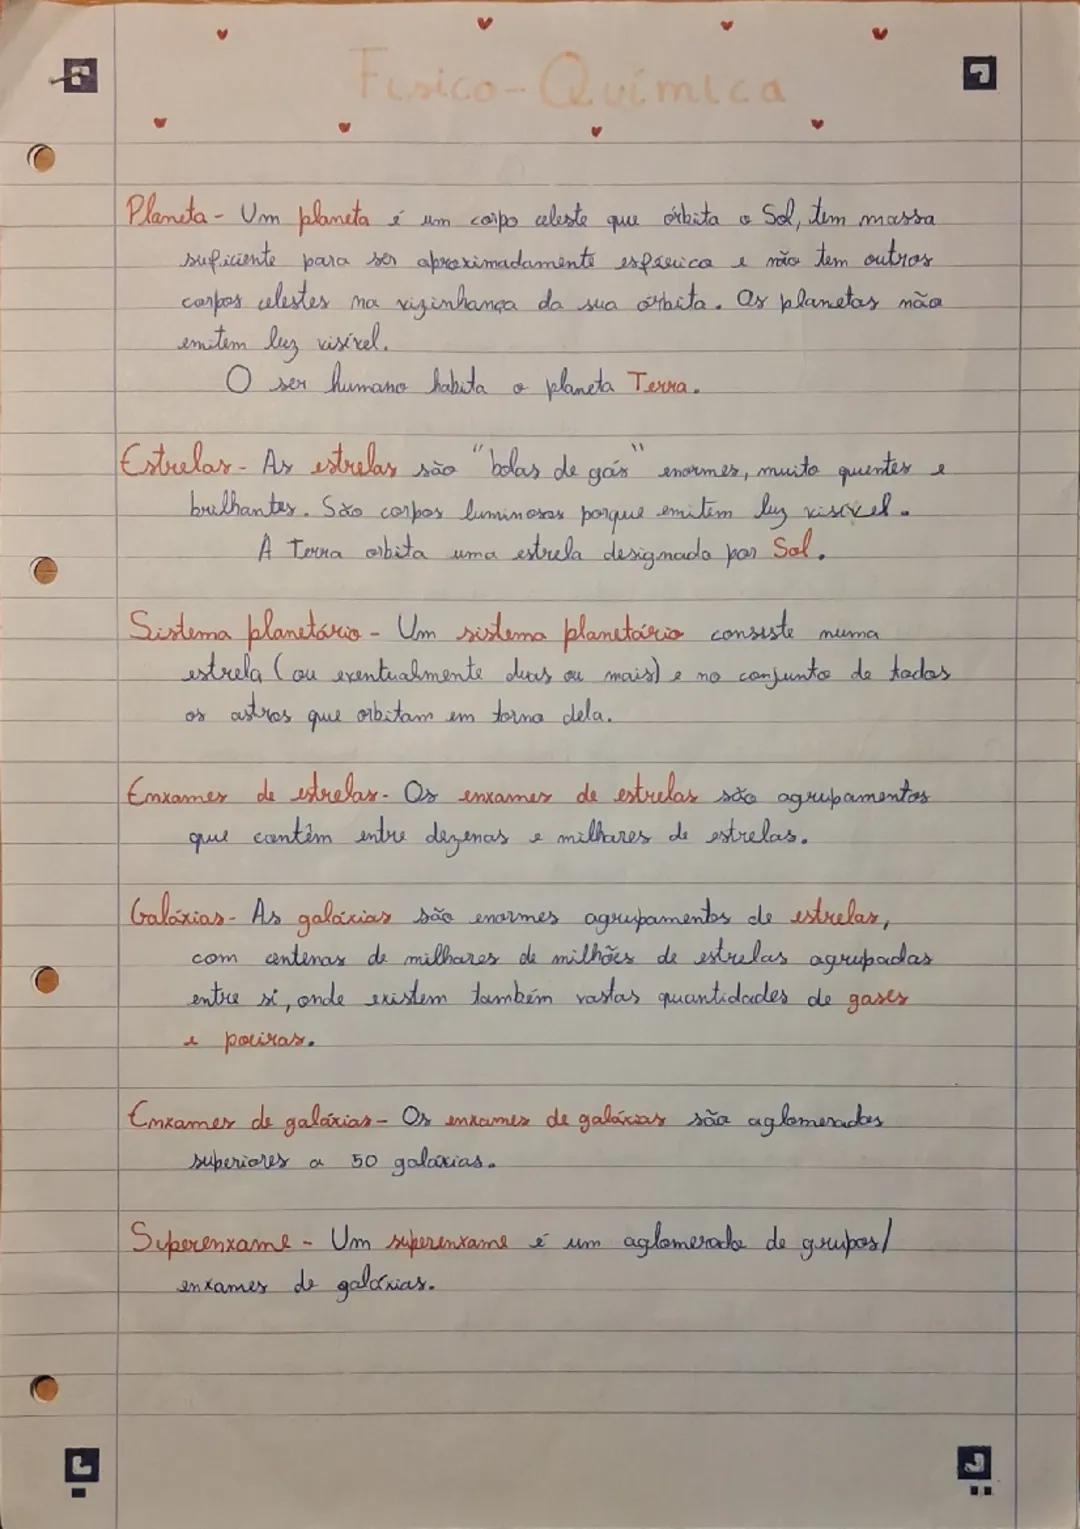 Fisico-Química
Planeta - Um planeta é um corpo celeste que órbita o Sol, tem massa
suficiente para ser aproximadamente esférica e não tem outros
corpos celestes na vizinhança da sua órbita. Os planetas não
emitem luz visível.
O ser humano habita o planeta Terra.
Estrelas - As estrelas são "bolas de gás" enormes, muito quentes e
brilhantes. São corpos luminosos porque emitem luz visível.
A Terra orbita uma estrela designada por Sol.
Sistema planetário - Um sistema planetário consiste numa
estrela (ou eventualmente duas ou mais) e no conjunto de todos
os astros que orbitam em torno dela.
Enxames de estrelas - Os enxames de estrelas são agrupamentos
que contêm entre dezenas e milhares de estrelas.
Galáxias - As galáxias são enormes agrupamentos de estrelas,
com centenas de milhares de milhões de estrelas agrupadas
entre si, onde existem também vastas quantidades de gases
e poeiras.
Enxames de galáxias - Os enxames de galáxias são aglomerados
superiores a 50 galáxias.
Superenxame - Um superenxame é um aglomerado de grupos/
enxames de galáxias.